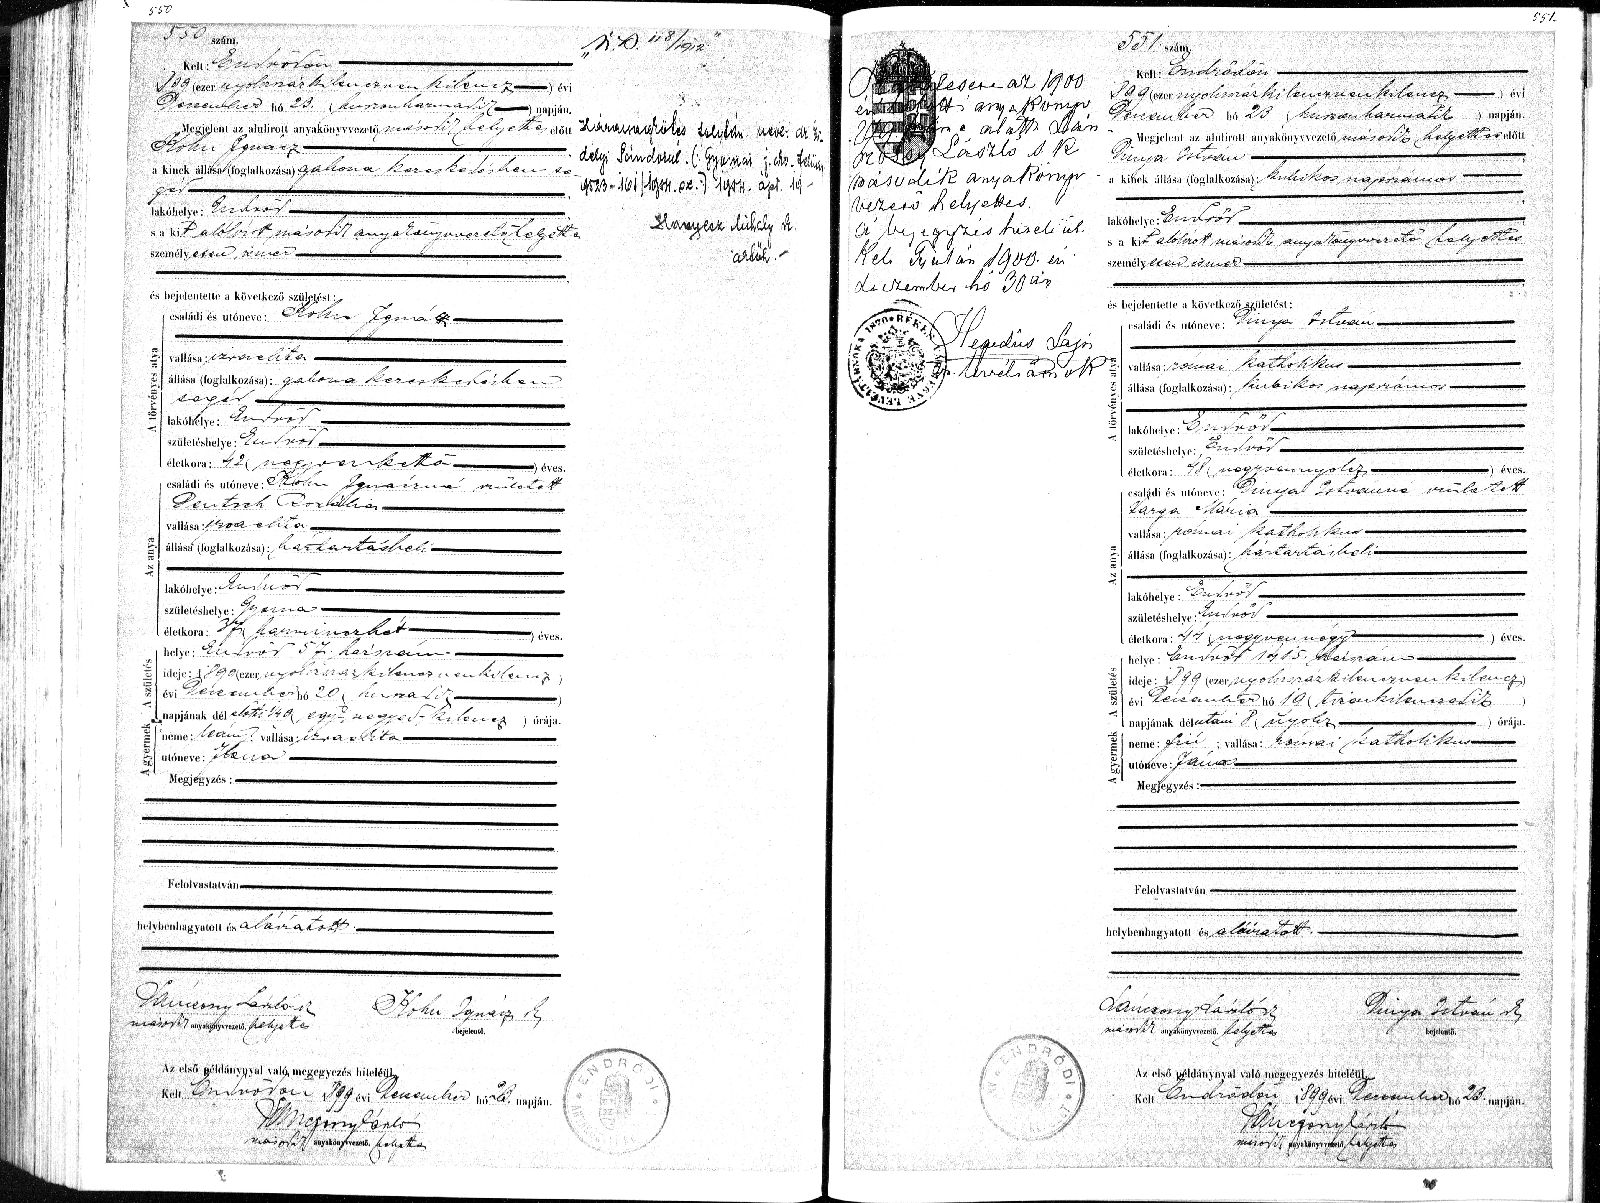 550
550 szám.
Kelt: Endrődön
899 (ezer nyolczszázkilenczvenkilencz) évi
Deczember hó 23. (huszonharmadik) napján.
Megjelent az alulirott anyakönyvvezető második helyettes előtt
Kohn Ignácz
a kinek állása (foglalkozása) gabona kereskedésben se-
géd
lakóhelye: Endrőd
s a kit alólirott második anyakönyvvezető helyettes
személyesen ismer
és bejelentette a következő születést:
A törvényes atya
családi és utóneve: Kohn Ignácz
vallása: izraelita
állása (foglalkozása): gabona kereskedésben
segéd
lakóhelye: Endrőd
születéshelye: Endrőd
életkora: 42 (negyvenkettő) éves.
Az anya
családi és utóneve: Kohn Ignáczné született
Deutsch Rozália
vallása: izraelita
állása (foglalkozása): háztartásbeli
lakóhelye: Endrőd
születéshelye: Gyoma
életkora: 37 (harminczhét) éves.
A születés
helye: Endrőd 57. házszám
ideje: 1899 (ezer nyolczszázkilenczvenkilencz)
évi Deczember hó 20 (huszadik)
napjának dél előtti 1/49 (egy negyed kilencz) órája.
A gyermek
neme: leány; vallása: izraelita
utóneve: Ilona
Megjegyzés:
Felolvastatván
helybenhagyatott és aláiratott.
Lánczony László sk
második anyakönyvvezető. helyettes
Kohn Ignácz sk
bejelentő.
Az első példánynyal való megegyezés hiteléül
Kelt Endrődön 899 évi Deczember hó 23. napján.
Lánczony László
második anyakönyvvezető. helyettes
ENDRŐDI
118/1912
Házasságkötés folytán neve:
delyi Sándorné. (Gyomai j.
1904. ápr. 19
Mihály k.
551.
az 1900
anyakönyv
alatt Lán-
László s k
második anyakönyv-
vezető helyettes.
A bejegyzés hiteléül.
Kelt Gyulán 1900. évi
deczember hó 30 án
Hegedüs Lajos
levéltárnok
BÉKÉS VÁRMEGYE LEVÉLTÁRNOKA 1870
551. szám.
Kelt: Endrődön
899 (ezer nyolczszázkilenczvenkilencz) évi
Deczember hó 23 (huszonharmadik) napján.
Megjelent az alulirott anyakönyvvezető második helyettes előtt
Dinya István
a kinek állása (foglalkozása): kubikos napszámos
lakóhelye: Endrőd
s a kit alólirott második anyakönyvvezető helyettes
személyesen ismer
és bejelentette a következő születést:
A törvényes atya
családi és utóneve: Dinya István
vallása: római katholikus
állása (foglalkozása): kubikos napszámos
lakóhelye: Endrőd
születéshelye: Endrőd
életkora: 48 (negyvennyolcz) éves.
Az anya
családi és utóneve: Dinya Istvánné született
Varga Mária
vallása: római katholikus
állása (foglalkozása): háztartásbeli
lakóhelye: Endrőd
születéshelye: Endrőd
életkora: 44 (negyvennégy) éves.
A születés
helye: Endrőd 1415. házszám
ideje: 899 (ezer nyolczszázkilenczvenkilencz)
évi Deczember hó 19 (tizenkilenczedik)
napjának délutáni 8 (nyolcz) órája.
A gyermek
neme: fiú; vallása: római katholikus
utóneve: János
Megjegyzés:
Felolvastatván
helybenhagyatott és aláiratott.
Lánczony László sk
második anyakönyvvezető. helyettes
Dinya István sk
bejelentő.
Az első példánynyal való megegyezés hiteléül.
Kelt Endrődön 1899 évi Deczember hó 23. napján.
Lánczony László
második anyakönyvvezető. helyettes
ENDRŐDI